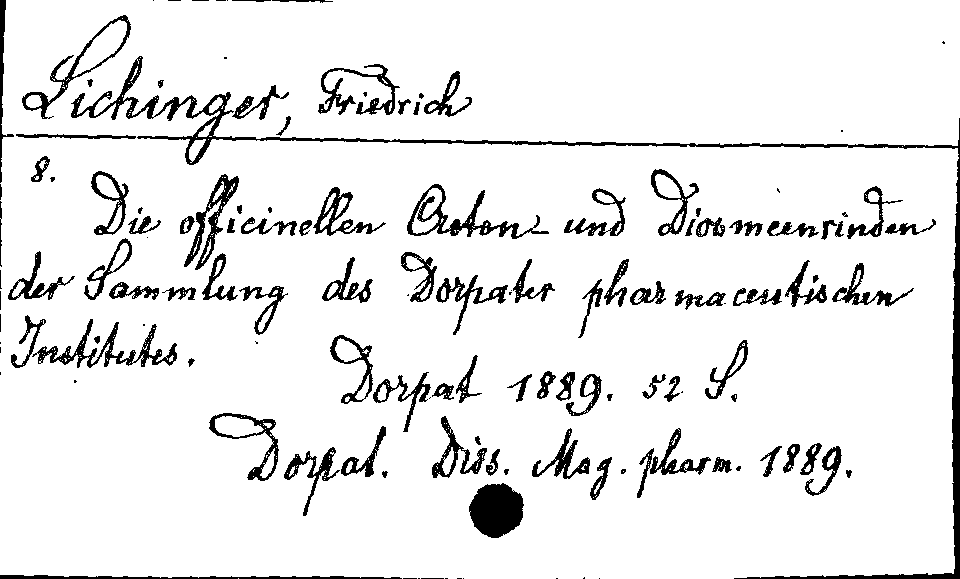 Lichinger, Friedrich
8.
Die officinellen Croton- und Diosmeenrinden
der Sammlung des Dorpater pharmaceutischen
Institutes.
Dorpat 1889. 52 S.
Dorpat. Diss. Mag. pharm. 1889.